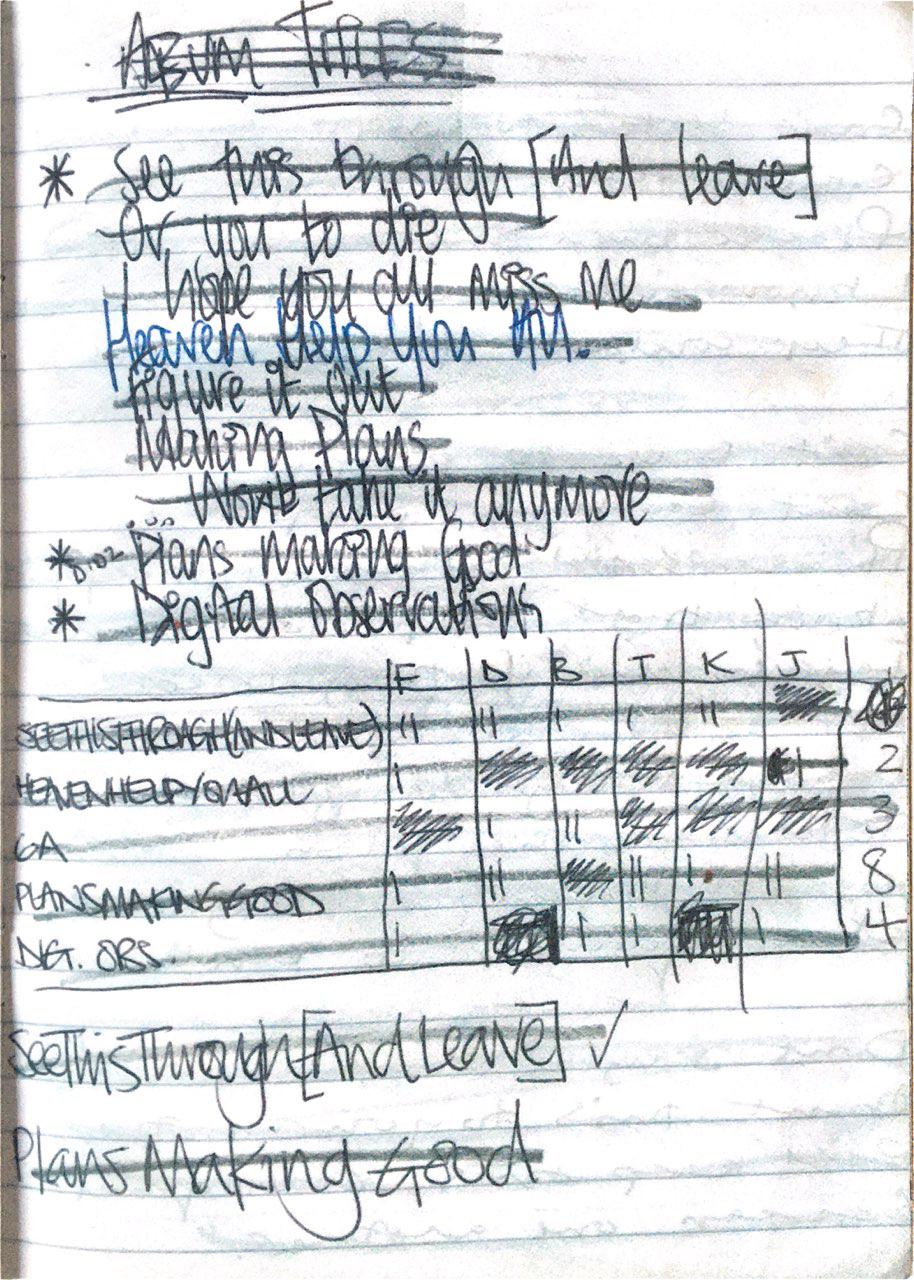 ALBUM TITLES
* See this through [And leave]
Or you to die
I hope you all miss me
Heaven Help You All.
Figure it out
Making Plans
... Wont take it anymore
* Plans making Good
* Digital Observations
F D B T K J
SEETHISTHROAGH(ANDLEAVE) 11 11 1 1 11
HEAVENHELPYOUALL 1 1 2
GA 1 11 3
PLANSMAKINGGOOD 1 11 111 1 11 8
DIG. OBS. 1 1 1 1 4
SeeThisThrough[AndLeave] ✓
Plans Making Good